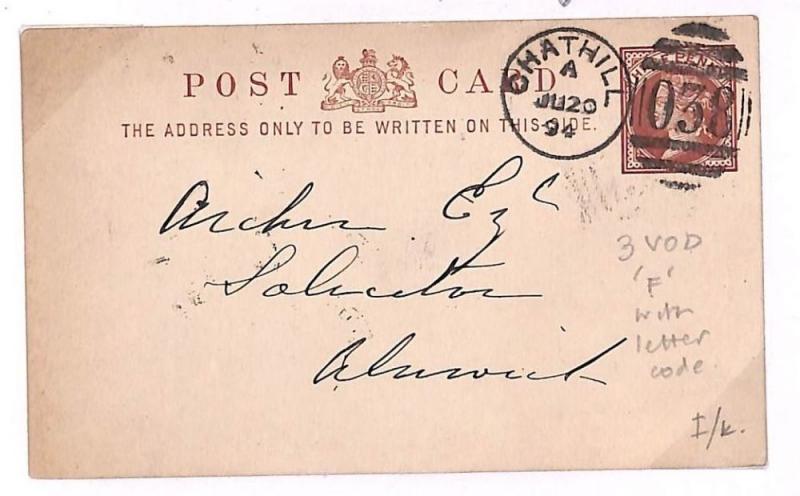 POST CARD
THE ADDRESS ONLY TO BE WRITTEN ON THIS SIDE.
CHATHILL
A
JU20
94
HALFPENNY
038
Archer Esqr
Solicitor
Alnwick
3 VOD
'F'
with
letter
code.
I/k.